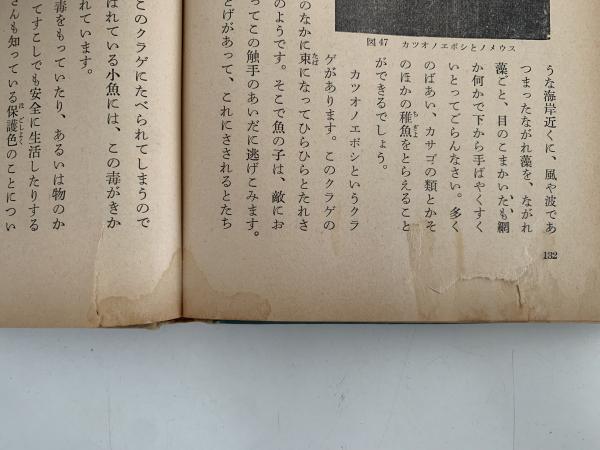 図47 カツオノエボシとノメウス
うな海岸近くに、風や波であ
つまったながれ藻を、ながれ
藻ごと、目のこまかいたも網
か何かで下から手ばやくすく
いとってごらんなさい。多く
のばあい、カサゴの類とかそ
のほかの稚魚をとらえること
ができるでしょう。
カツオノエボシというクラ
ゲがあります。このクラゲの
のなかに束になってひらひらとたれさ
のようです。そこで魚の子は、敵にお
ってこの触手のあいだに逃げこみます。
とげがあって、これにさされるとたち
132
このクラゲにたべられてしまうので
ばれている小魚には、この毒がきか
れています。
毒をもっていたり、あるいは物のか
てすこしでも安全に生活したりする
さんも知っている保護色のことについ